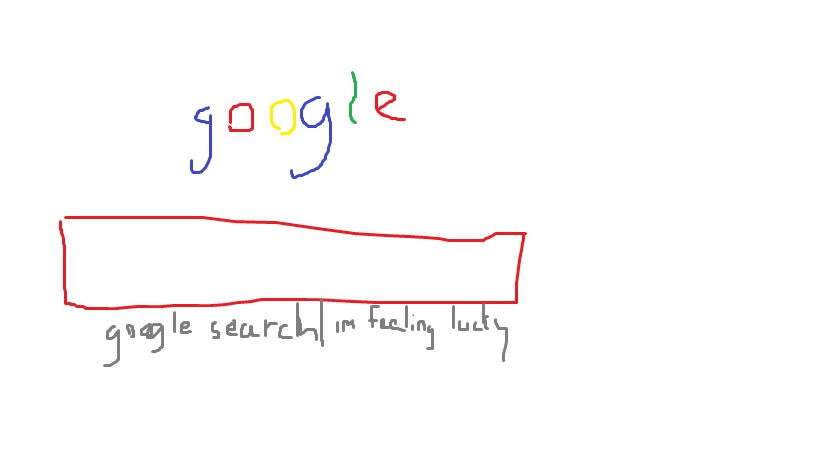 google
google search | im feeling lucky